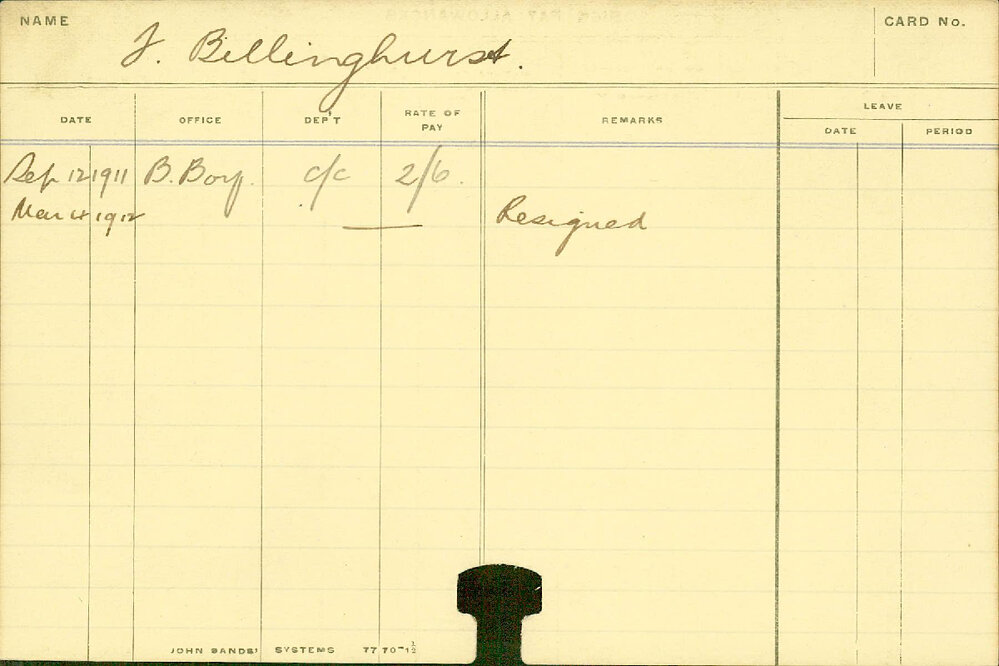 NAME
J. Billinghurst.
CARD No.
DATE OFFICE DEP'T RATE OF PAY REMARKS LEAVE
DATE PERIOD
Sep 12 1911 B. Boy. c/c 2/6.
Mar 4 1912 — Resigned
JOHN SANDS' SYSTEMS 7770-1/2